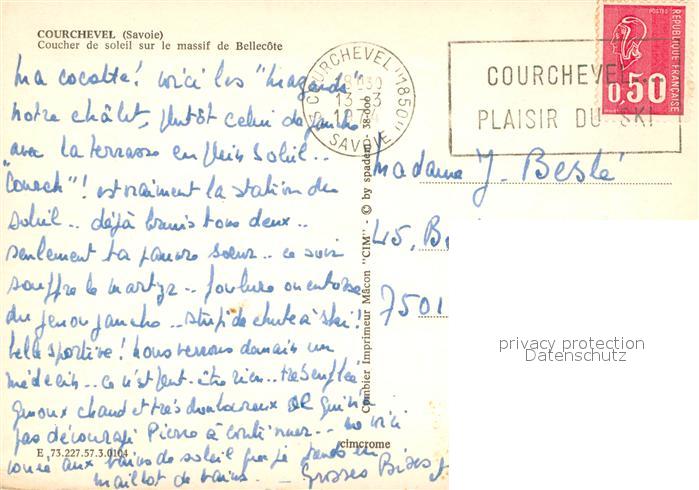 COURCHEVEL (Savoie)
Coucher de soleil sur le massif de Bellecôte
COURCHEVEL "1850"
18H30
13-3
SAVOIE
COURCHEVEL...
PLAISIR DU SKI
POSTES
0,50
REPUBLIQUE FRANÇAISE
Ma cocotte! voici les
notre châlet, plutôt celui de gauche
avec la terrasse en plein soleil..
"Courch"! est vraiment la station du
soleil.. déjà brunis tous deux..
seulement ta pauvre soeur.. ce soir
souffre le martyr.. foulure ou entorse
du genou gauche.. stupide chute à ski!
belle sportive! nous verrons demain un
médecin.. ce n'est peut-être rien.. très enflé
genoux chaud et très douloureux
pas découragé Pierre à continuer.. me voici
vouée aux bains de soleil que je prends en
maillot de bains
Grosses Bises
Madame J. Beslé
45, B
7501
Combier Imprimeur Mâcon "CIM" - © by spadem 38-000
cimcrome
E 73.227.57.3.0104
privacy protection
Datenschutz